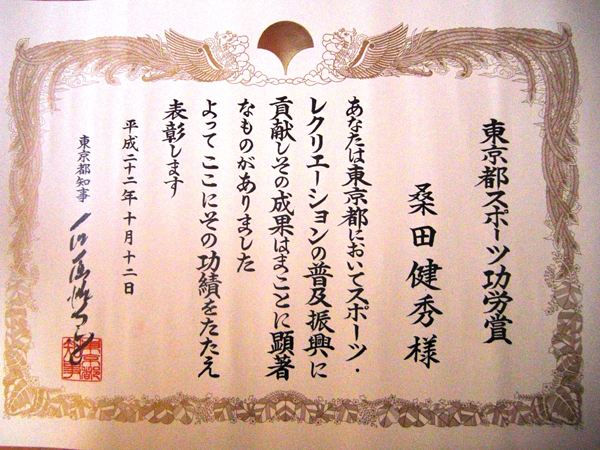 東京都スポーツ功労賞
桑田健秀様
あなたは東京都においてスポーツ・
レクリエーションの普及振興に
貢献しその成果はまことに顕著
なものがありました
よってここにその功績をたたえ
表彰します
平成二十二年十月十二日
東京都知事
東京都
知事